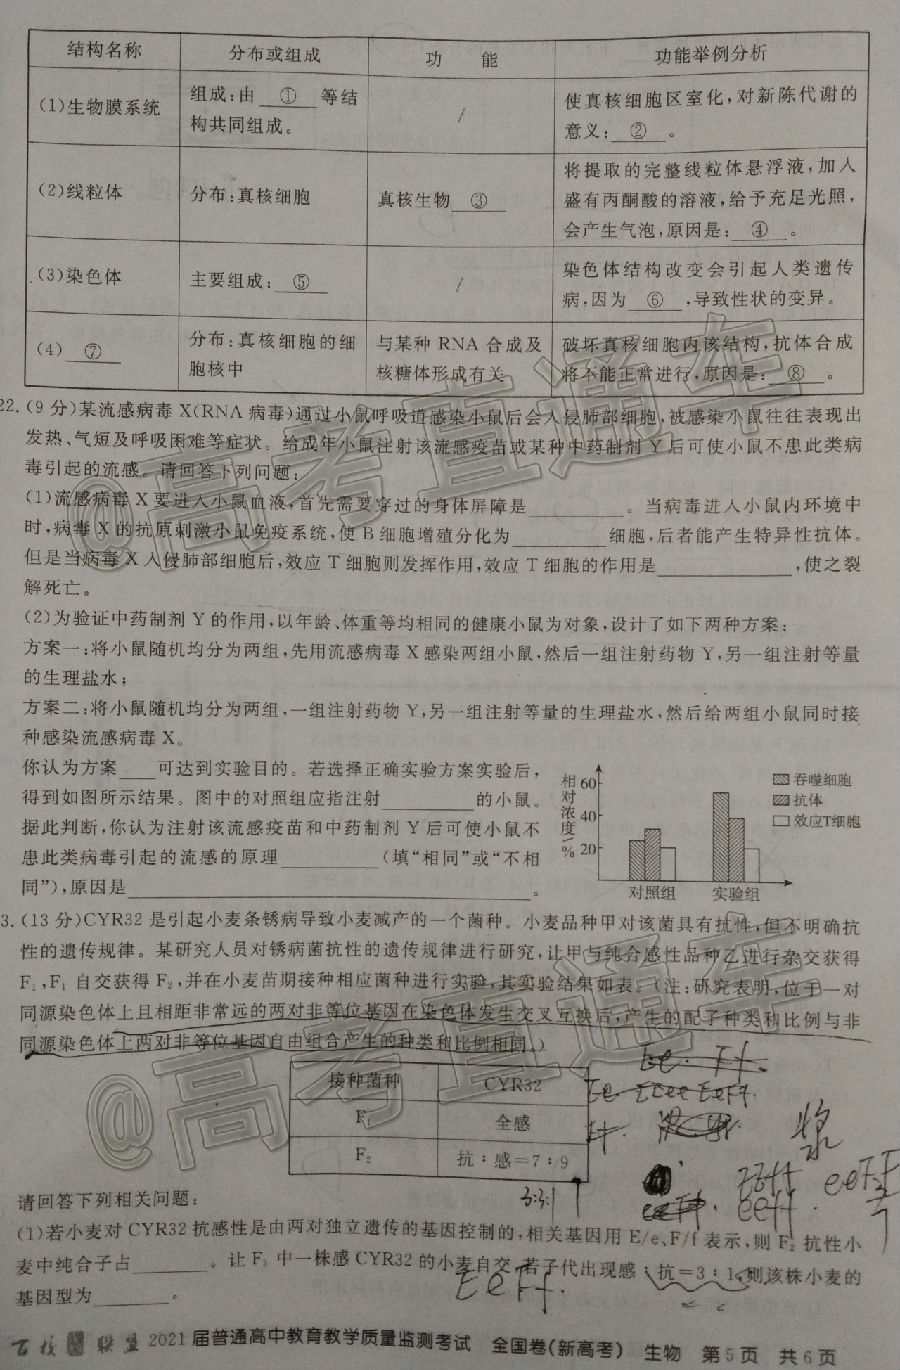 结构名称 分布或组成 功 能 功能举例分析
(1)生物膜系统 组成:由 ① 等结构共同组成。 / 使真核细胞区室化,对新陈代谢的意义: ② 。
(2)线粒体 分布:真核细胞 真核生物 ③ 将提取的完整线粒体悬浮液,加入盛有丙酮酸的溶液,给予充足光照,会产生气泡,原因是: ④ 。
(3)染色体 主要组成: ⑤ / 染色体结构改变会引起人类遗传病,因为 ⑥ ,导致性状的变异。
(4) ⑦ 分布:真核细胞的细胞核中 与某种 RNA 合成及核糖体形成有关 破坏真核细胞内该结构,抗体合成将不能正常进行,原因是: ⑧ 。
22.(9 分)某流感病毒 X(RNA 病毒)通过小鼠呼吸道感染小鼠后会入侵肺部细胞,被感染小鼠往往表现出
发热、气短及呼吸困难等症状。给成年小鼠注射该流感疫苗或某种中药制剂 Y 后可使小鼠不患此类病
毒引起的流感。请回答下列问题:
(1)流感病毒 X 要进入小鼠血液,首先需要穿过的身体屏障是________。当病毒进入小鼠内环境中
时,病毒 X 的抗原刺激小鼠免疫系统,使 B 细胞增殖分化为________细胞,后者能产生特异性抗体。
但是当病毒 X 入侵肺部细胞后,效应 T 细胞则发挥作用,效应 T 细胞的作用是____________,使之裂
解死亡。
(2)为验证中药制剂 Y 的作用,以年龄、体重等均相同的健康小鼠为对象,设计了如下两种方案:
方案一:将小鼠随机均分为两组,先用流感病毒 X 感染两组小鼠,然后一组注射药物 Y,另一组注射等量
的生理盐水;
方案二:将小鼠随机均分为两组,一组注射药物 Y,另一组注射等量的生理盐水,然后给两组小鼠同时接
种感染流感病毒 X。
你认为方案____可达到实验目的。若选择正确实验方案实验后,
得到如图所示结果。图中的对照组应指注射________的小鼠。
据此判断,你认为注射该流感疫苗和中药制剂 Y 后可使小鼠不
患此类病毒引起的流感的原理________(填“相同”或“不相
同”),原因是____________________。
相对浓度/%
60
40
20
对照组 实验组
吞噬细胞
抗体
效应T细胞
3.(13 分)CYR32 是引起小麦条锈病导致小麦减产的一个菌种。小麦品种甲对该菌具有抗性,但不明确抗
性的遗传规律。某研究人员对锈病菌抗性的遗传规律进行研究,让甲与纯合感性品种乙进行杂交获得
F₁,F₁ 自交获得 F₂,并在小麦苗期接种相应菌种进行实验,其实验结果如表。(注:研究表明,位于一对
同源染色体上且相距非常远的两对非等位基因在染色体发生交叉互换后,产生的配子种类和比例与非
同源染色体上两对非等位基因自由组合产生的种类和比例相同。)
接种菌种 CYR32
F₁ 全感
F₂ 抗:感=7:9
Ee. Ff.
eeFF
eeff
请回答下列相关问题:
(1)若小麦对 CYR32 抗感性是由两对独立遗传的基因控制的,相关基因用 E/e、F/f 表示,则 F₂ 抗性小
麦中纯合子占________。让 F₂ 中一株感 CYR32 的小麦自交,若子代出现感:抗=3:1,则该株小麦的
基因型为________。
EeFF
百校联盟 2021 届普通高中教育教学质量监测考试 全国卷(新高考) 生物 第 5 页 共 6 页
@高考直通车
@高考直通车